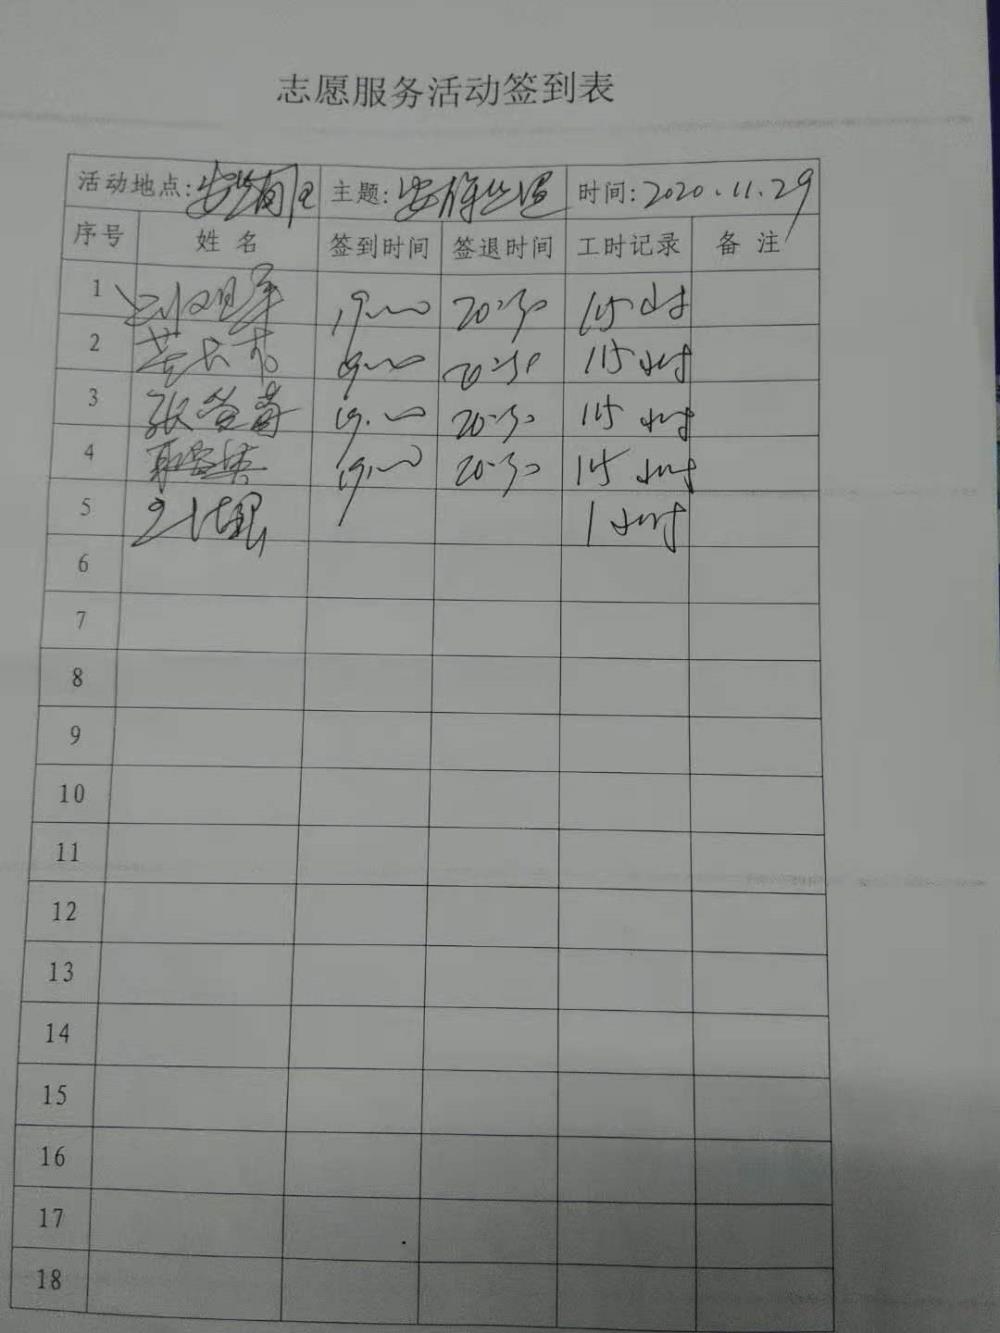 志愿服务活动签到表
活动地点: 主题: 时间:2020.11.29
序号 姓名 签到时间 签退时间 工时记录 备注
1 19:00 20:30 1.5小时
2 19:00 20:30 1.5小时
3 19:00 20:30 1.5小时
4 19:00 20:30 1.5小时
5 1小时
6
7
8
9
10
11
12
13
14
15
16
17
18